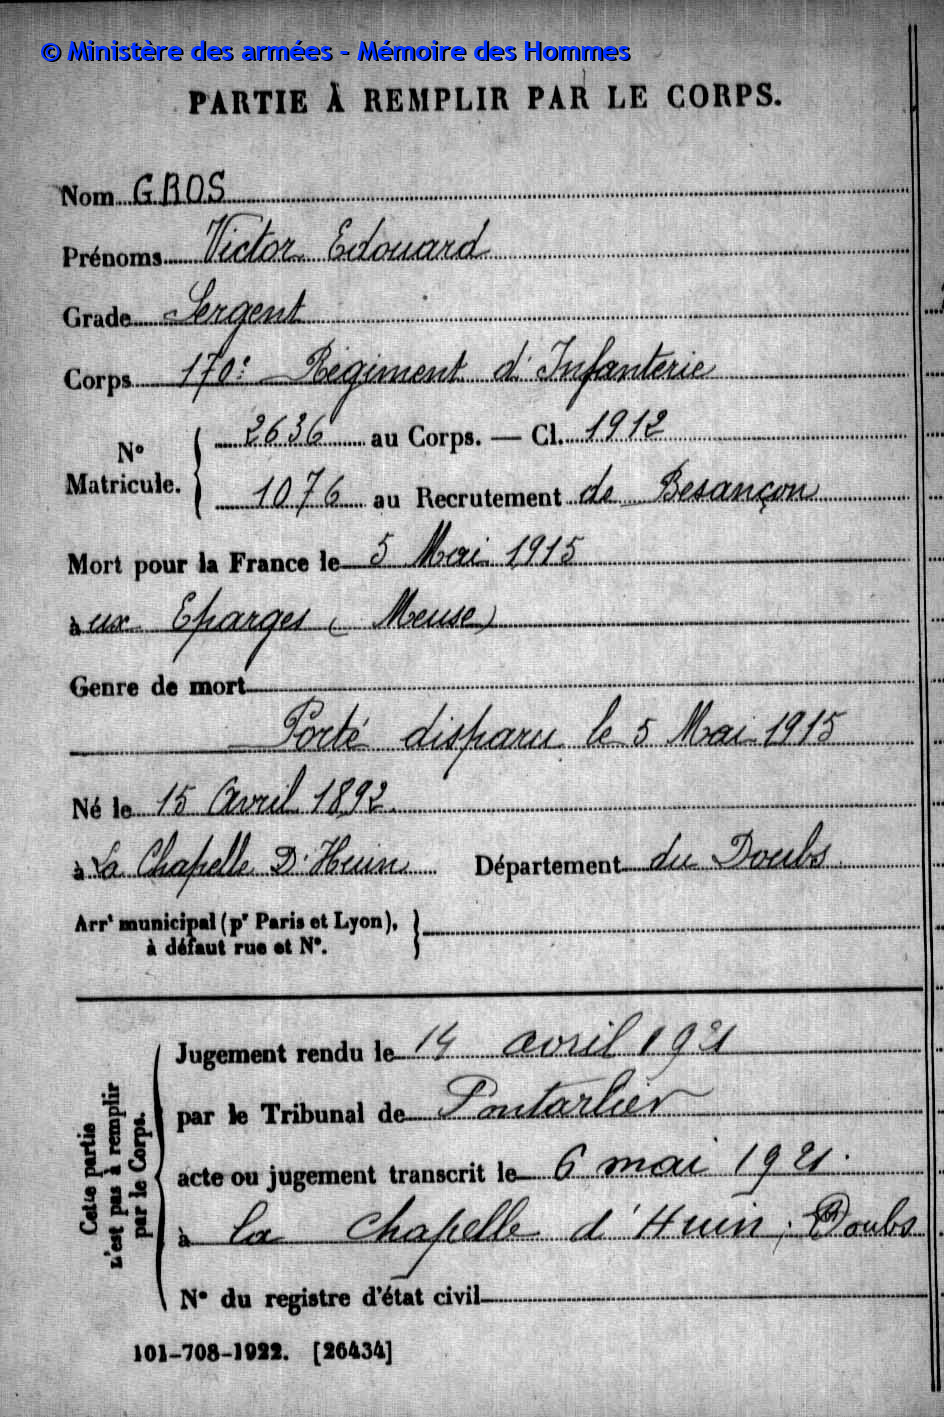 © Ministère des armées - Mémoire des Hommes
PARTIE À REMPLIR PAR LE CORPS.
Nom GROS
Prénoms Victor Edouard
Grade Sergent
Corps 170e Régiment d'Infanterie
N° Matricule. { 2636 au Corps. — Cl. 1912
1076 au Recrutement de Besançon
Mort pour la France le 5 Mai 1915
à ux Eparges (Meuse)
Genre de mort
Porté disparu le 5 Mai 1915
Né le 15 Avril 1892.
à La Chapelle D'Huin Département du Doubs
Arrt municipal (pr Paris et Lyon), }
à défaut rue et N°.
Cette partie n'est pas à remplir par le Corps.
Jugement rendu le 14 avril 1921
par le Tribunal de Pontarlier
acte ou jugement transcrit le 6 mai 1921.
à la Chapelle d'Huin, Doubs
N° du registre d'état civil
101-708-1922. [26434]